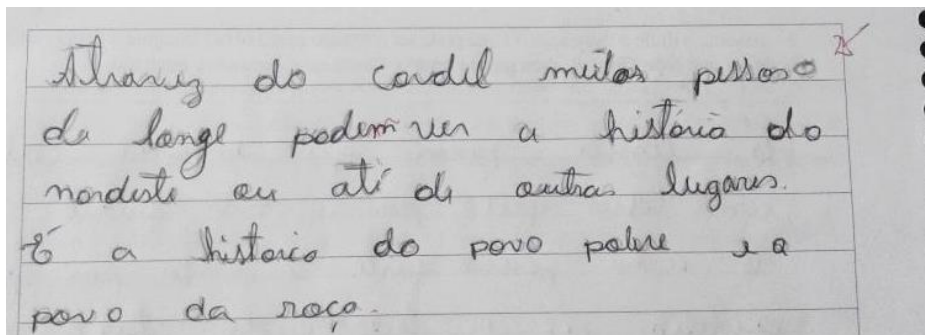 Atravez do cordel muitas pessoas
de longe podem ver a história do
nordeste ou até de outras lugares.
É a historia do povo pobre e a
povo da roça.